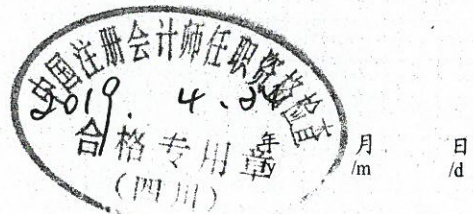 中国注册会计师任职资格检查
2019. 4. 3
合格专用章
(四川)
年 月 日
/y /m /d